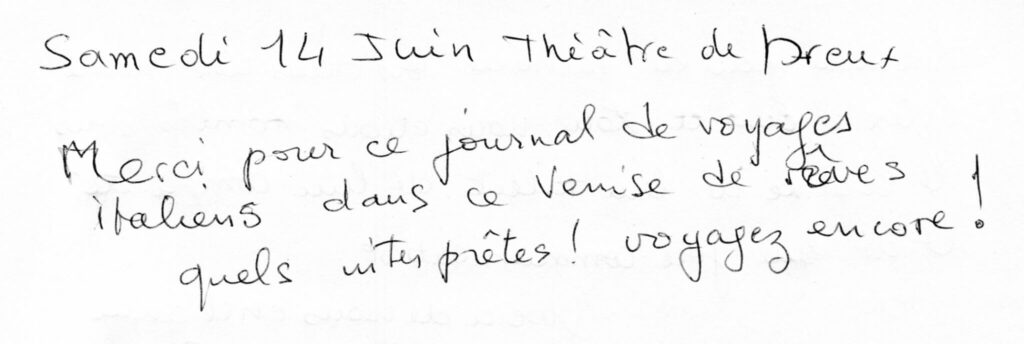 Samedi 14 Juin Théâtre de Dreux
Merci pour ce journal de voyages
italiens dans ce Venise de rêves
quels interprêtes! voyagez encore!